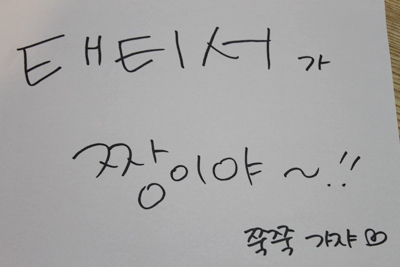 태티서가
짱이야~!!
쭉쭉 가쟈